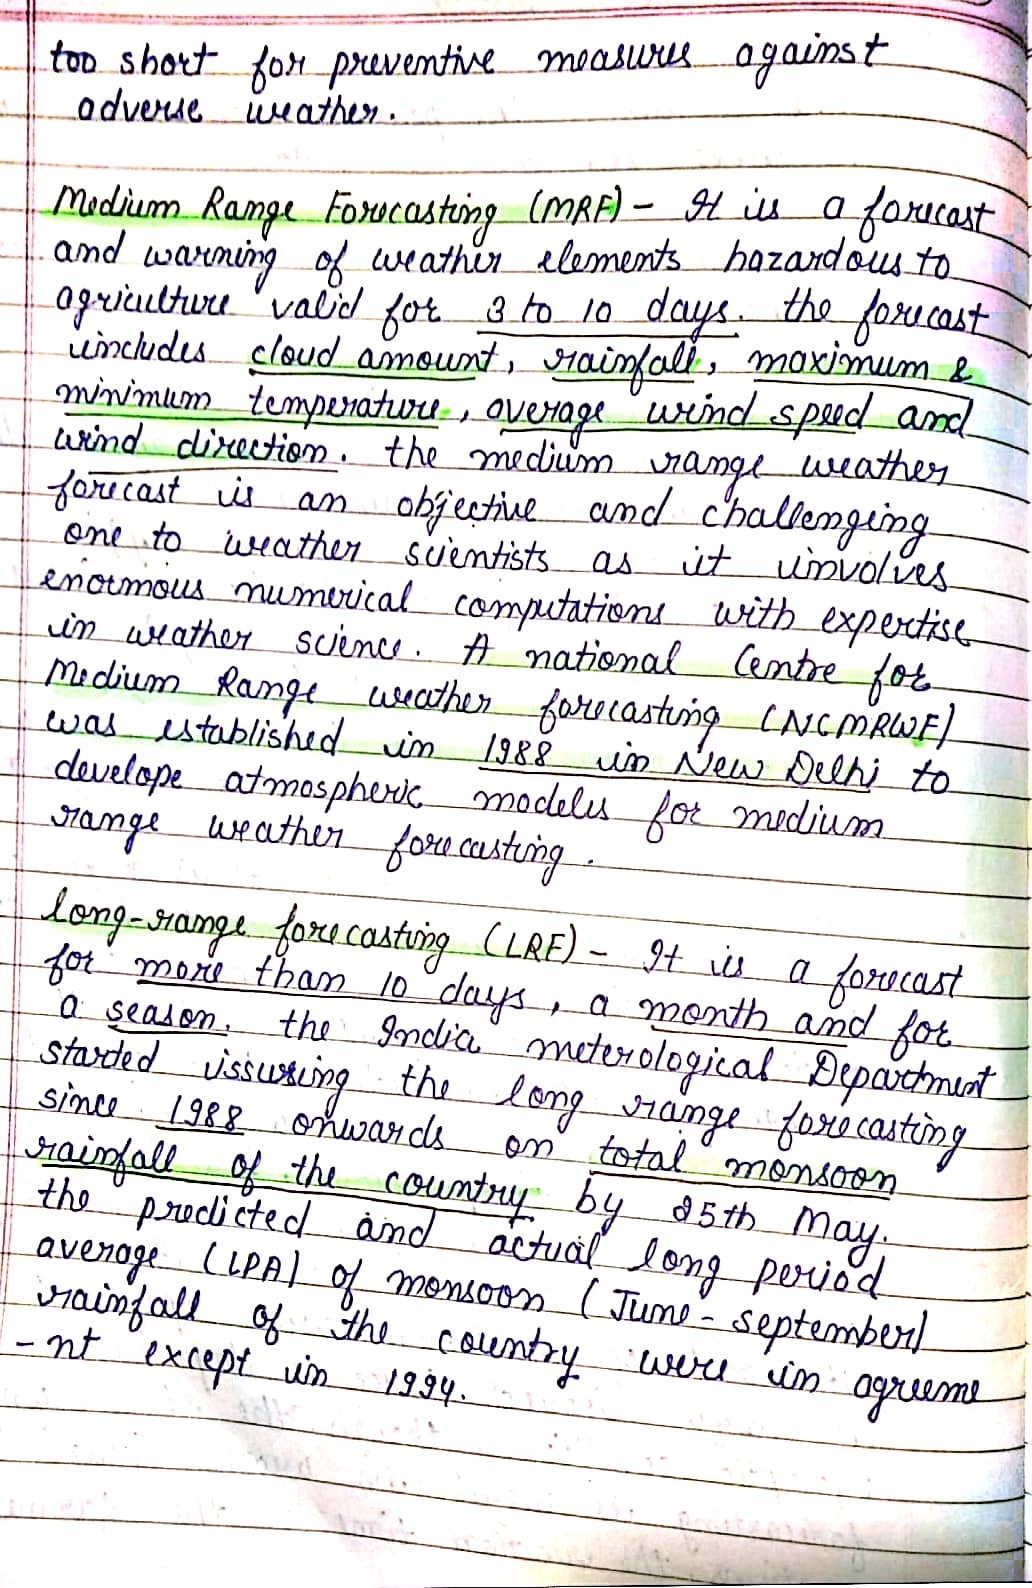 too short for preventive measures against
adverse weather.
Medium Range Forecasting (MRF) - It is a forecast
and warning of weather elements hazardous to
agriculture valid for 3 to 10 days. the forecast
includes cloud amount, rainfall, maximum &
minimum temperature, average wind speed and
wind direction. the medium range weather
forecast is an objective and challenging
one to weather scientists as it involves
enormous numerical computations with expertise
in weather science. A national Centre for
Medium Range weather forecasting (NCMRWF)
was established in 1988 in New Delhi to
develope atmospheric models for medium
range weather forecasting.
long-range forecasting (LRF) - It is a forecast
for more than 10 days, a month and for
a season. the India meterological Department
started issusing the long range forecasting
since 1988 onwards on total monsoon
rainfall of the country by 25th May.
the predicted and actual long period
average (LPA) of monsoon (June - September)
rainfall of the country were in agreeme
-nt except in 1994.